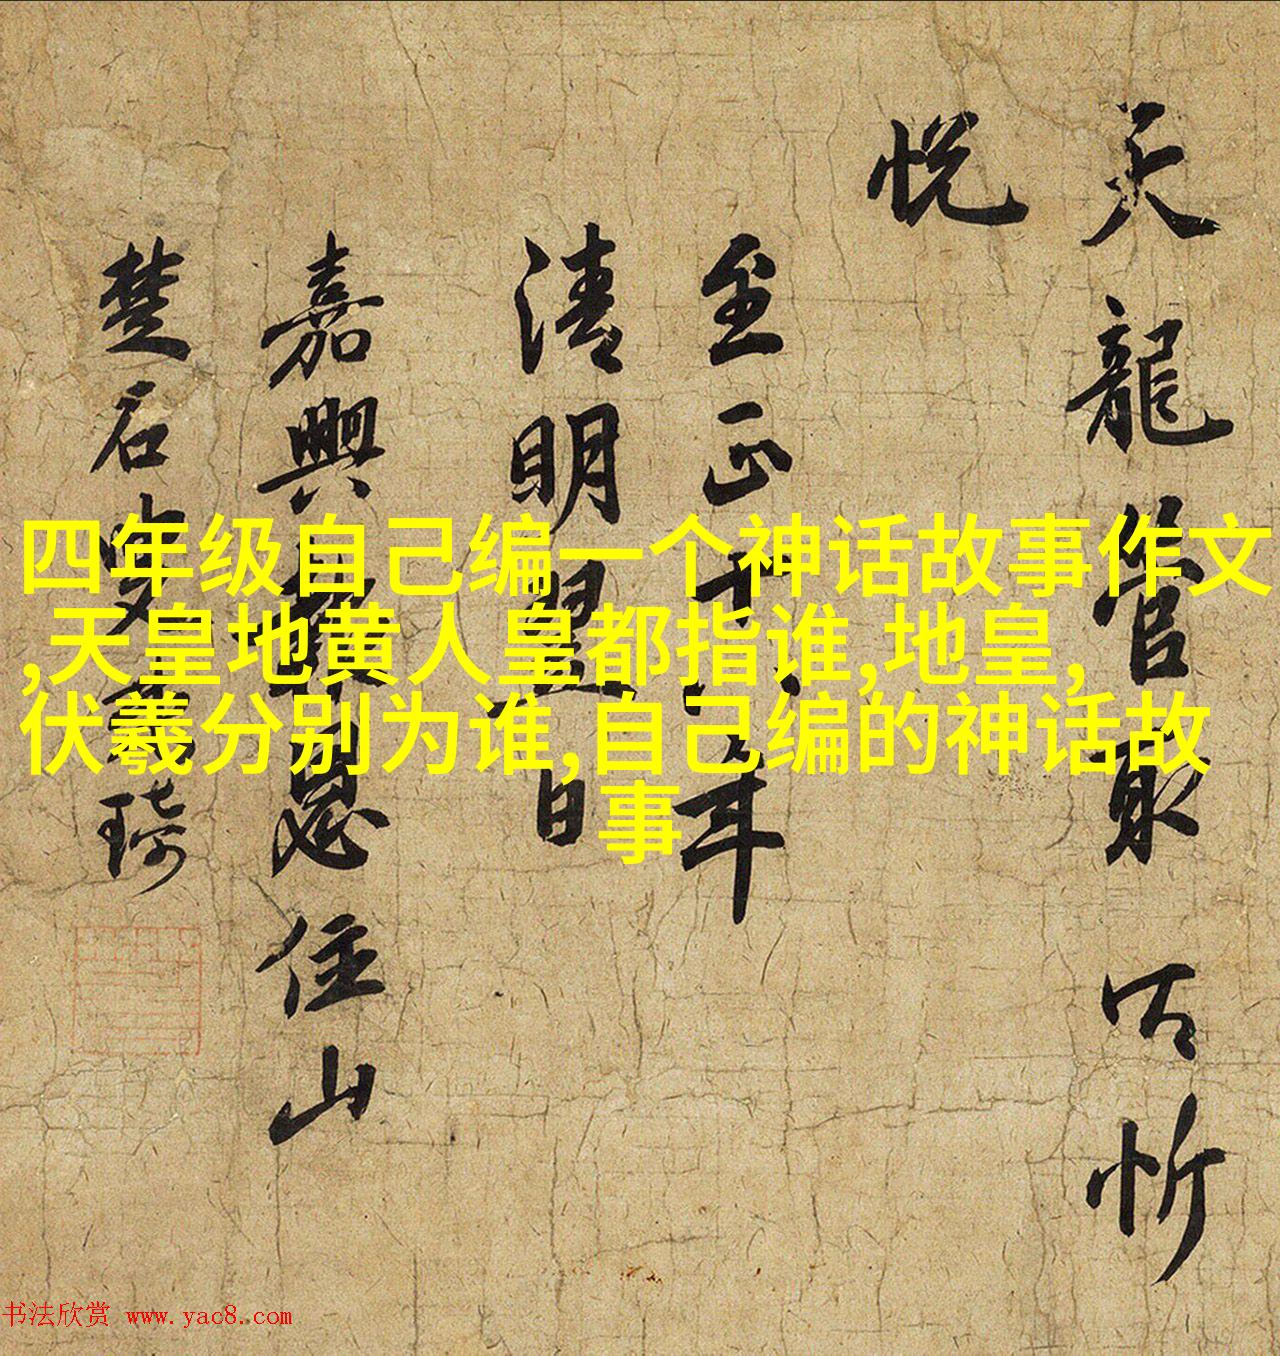 天龍管取忻
悅
至正十年
清明日
嘉興恩住山
楚石叟琦
四年级自己编一个神话故事作文
,天皇地黄人皇都指谁,地皇,
伏羲分别为谁,自己编的神话故
事
书法欣赏 www.yac8.com